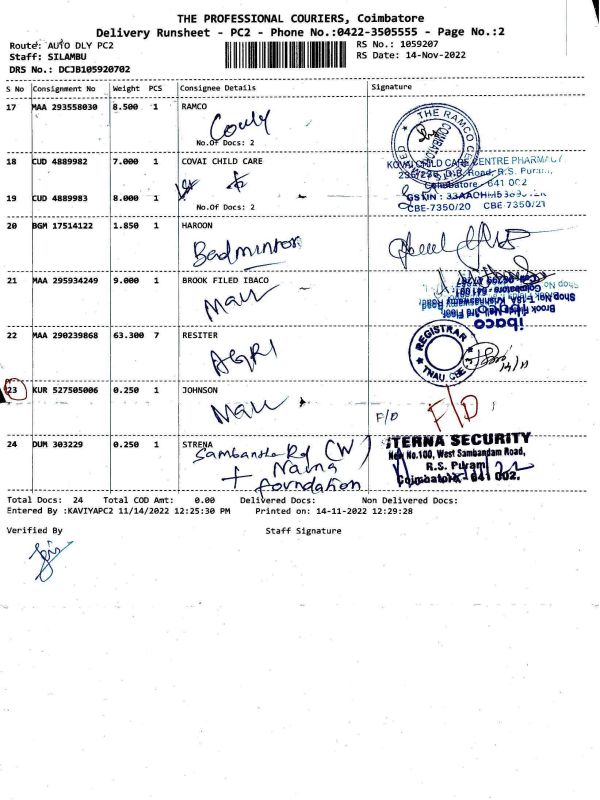 THE PROFESSIONAL COURIERS, Coimbatore
Delivery Runsheet - PC2 - Phone No.:0422-3505555 - Page No.:2
Route: AUTO DLY PC2
RS No.: 1059207
Staff: SILAMBU
RS Date: 14-Nov-2022
DRS No.: DCJB105920702
S No Consignment No Weight PCS Consignee Details Signature
17 MAA 293558030 8.500 1 RAMCO
No.Of Docs: 2
THE RAMCO
COIMBATORE
18 CUD 4889982 7.000 1 COVAI CHILD CARE
KOVAI CHILD CARE CENTRE PHARMACY
D.B. Road, R.S. Puram,
Coimbatore - 641 002
19 CUD 4889983 8.000 1
No.Of Docs: 2
GSTIN :
CBE-7350/20 CBE-7350/21
20 BGM 17514122 1.850 1 HAROON
Badminton
21 MAA 295934249 9.000 1 BROOK FILED IBACO
Mall
ibaco
22 MAA 290239868 63.300 7 RESITER
AGRI
REGISTRAR
TNAU CBE
23 KUR 527505006 0.250 1 JOHNSON
Mall
F/D
F/D
24 DUM 303229 0.250 1 STRENA
Rd (W)
+ Naina
foundation
ITERNA SECURITY
New No.100, West Sambandam Road,
R.S. Puram
Coimbatore - 641 002.
Total Docs: 24 Total COD Amt: 0.00 Delivered Docs: Non Delivered Docs:
Entered By :KAVIYAPC2 11/14/2022 12:25:30 PM Printed on: 14-11-2022 12:29:28
Verified By Staff Signature